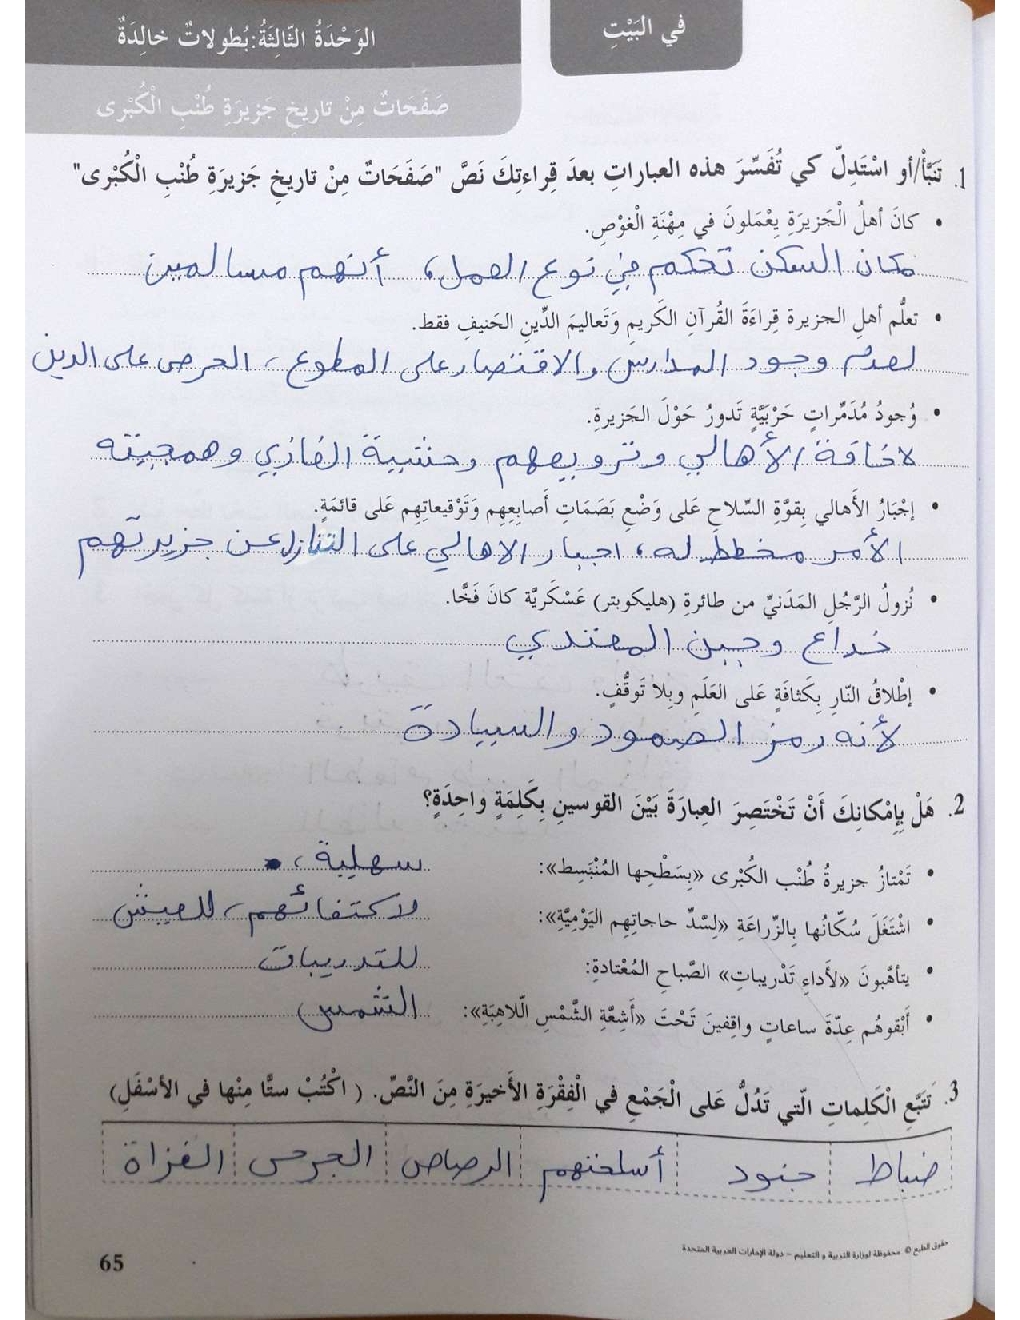 في البَيْتِ
الوَحْدَةُ الثّالِثَةُ:بُطولاتٌ خالِدَةٌ
صَفَحَاتٌ مِنْ تاريخِ جَزيرَةِ طُنْبِ الْكُبْرى
1. تَنَبَّأْ/أو اسْتَدِلّ كي تُفَسِّرَ هذه العباراتِ بعدَ قِراءتكَ نَصَّ "صَفَحَاتٌ مِنْ تاريخِ جَزيرَةِ طُنْبِ الْكُبْرى"
• كانَ أهلُ الْجَزيرَةِ يِعْمَلونَ في مِهْنَةِ الْغَوْصِ.
مكان السكن تحكم في نوع العمل، أنهم مسالمين
• تعلُّم أهلِ الجزيرة قِراءَةَ القُرآنِ الكَريمِ وَتَعاليمَ الدِّينِ الحَنيفِ فقط.
لعدم وجود المدارس والاقتصار على المطوع، الحرص على الدين
• وُجودُ مُدَمِّراتٍ حَرْبَيَّةٍ تَدورُ حَوْلَ الجَزيرةِ.
لاخافة الأهالي وترويعهم وخشية الغازي وهمجيته
• إجْبَارُ الأَهالي بِقوَّةِ السِّلاحِ عَلى وَضْعِ بَصَمَاتِ أَصابِعِهِم وَتَوْقيعاتِهِم عَلى قائمَةٍ.
الأمر مخطط له، اجبار الاهالي على التنازل عن جزيرتهم
• نُزولُ الرَّجُلِ المَدَنيِّ من طائرةِ (هليكوبتر) عَسْكَريَّة كانَ فَخًّا.
خداع وجبن المعتدي
• إطْلاقُ النّارِ بِكَثافَةٍ عَلى العَلَمِ وبِلا تَوقُّفٍ.
لأنه رمز الصمود والسيادة
2. هَلْ بِإمْكانِكَ أَنْ تَخْتَصِرَ العِبارَةَ بَيْنَ القوسينِ بِكَلِمَةٍ واحِدَةٍ؟
• تَمْتازُ جزيرةُ طُنْب الكُبْرى «بِسَطْحِها المُنْبَسِط»: سهلية،
• اشْتَغَلَ سُكّانُها بِالزِّراعَةِ «لِسَدِّ حاجاتِهِم اليَوْمِيَّةِ»: لاكتفائهم، للعيش
• يتأهَّبونَ «لأَداءِ تَدْريباتِ» الصَّباحِ المُعْتادةِ: للتدريبات
• أَبْقوهُم عِدّةَ ساعاتٍ واقِفينَ تَحْتَ «أَشِعَّةِ الشَّمْسِ الّلاهِبَةِ»: التشمس
3. تَتَبَّعِ الْكَلِماتِ الّتي تَدُلُّ عَلى الْجَمْعِ في الْفِقْرَةِ الأَخيرَةِ مِنَ النَّصِّ. ( اكْتُبْ ستًّا مِنْها في الأسْفَلِ)
ضباط جنود أسلحتهم الرصاص الجرحى الغزاة
حقوق الطبع © محفوظة لوزارة التربية و التعليم – دولة الإمارات العربية المتحدة
65